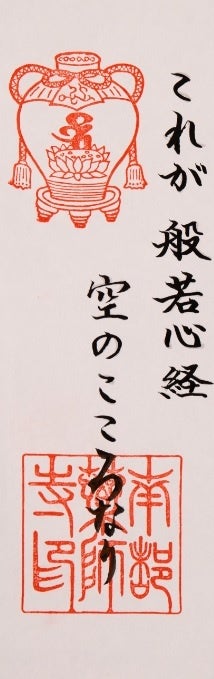 これが 般若心経
空のこころなり
南都
薬師
寺印